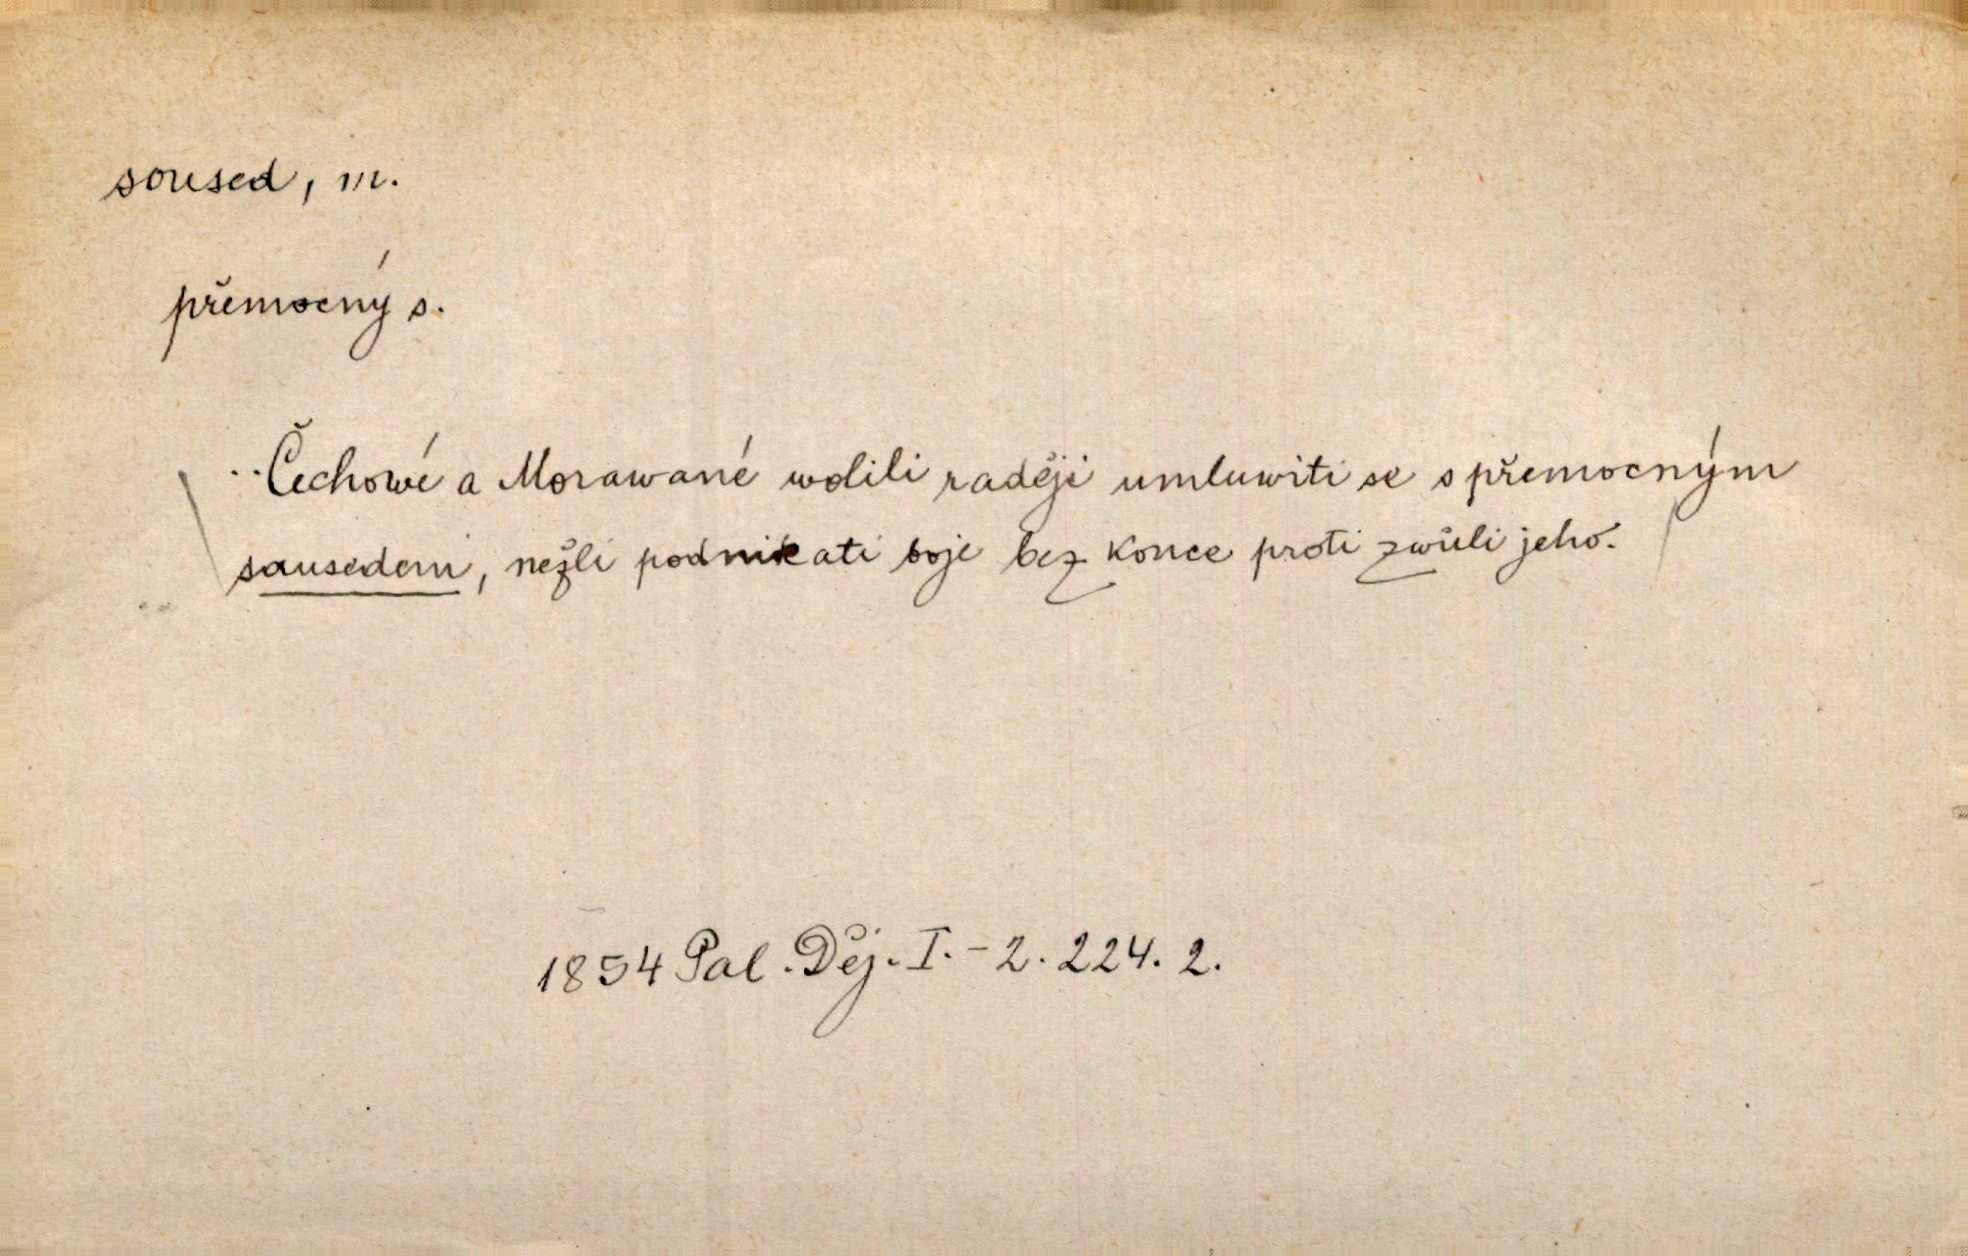 soused, m.
přemocný s.
..Čechowé a Morawané wolili raději umluwiti se s přemocným
sausedem, nežli podnikati boje bez konce proti zwůli jeho.
1854 Pal. Děj. I. - 2. 224. 2.